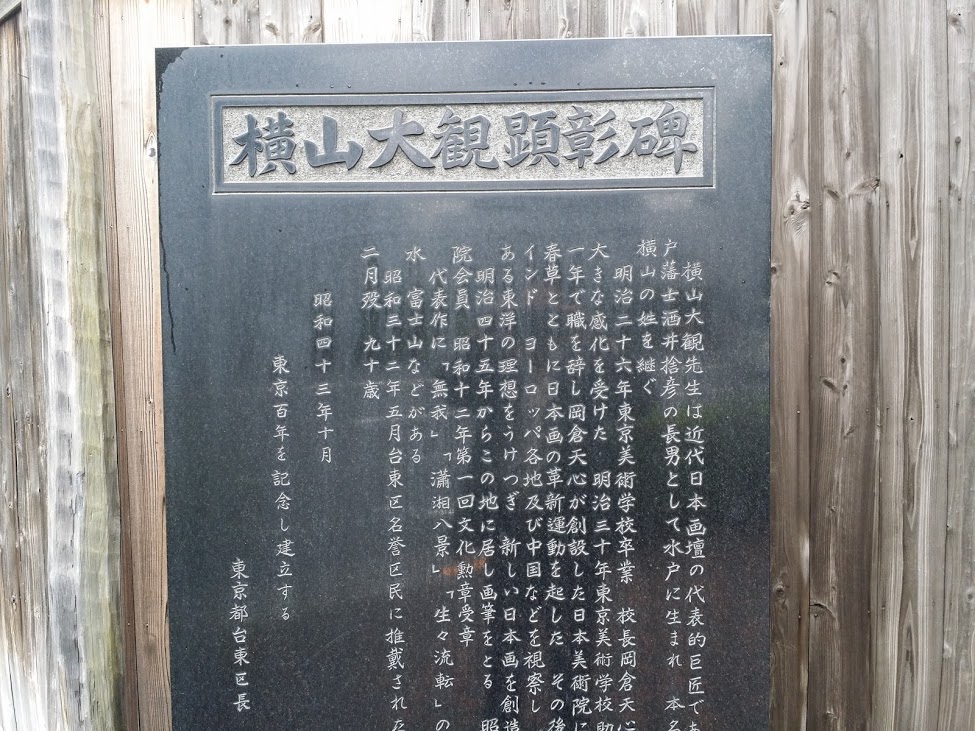 横山大観顕彰碑
横山大観先生は近代日本画壇の代表的巨匠であ
戸藩士酒井捨彦の長男として水戸に生まれ 本名
横山の姓を継ぐ
明治二十六年東京美術学校卒業 校長岡倉天心
大きな感化を受けた 明治三十年東京美術学校助
一年で職を辞し岡倉天心が創設した日本美術院に
春草とともに日本画の革新運動を起した その後
インド ヨーロッパ各地及び中国などを視察し
ある東洋の理想をうけつぎ 新しい日本画を創造
明治四十五年からこの地に居し画筆をとる 昭
院会員 昭和十二年第一回文化勲章受章
代表作に「無我」「瀟湘八景」「生々流転」の
水 富士山などがある
昭和三十二年五月台東区名誉区民に推戴された
二月歿 九十歳
昭和四十三年十月
東京百年を記念し建立する
東京都台東区長